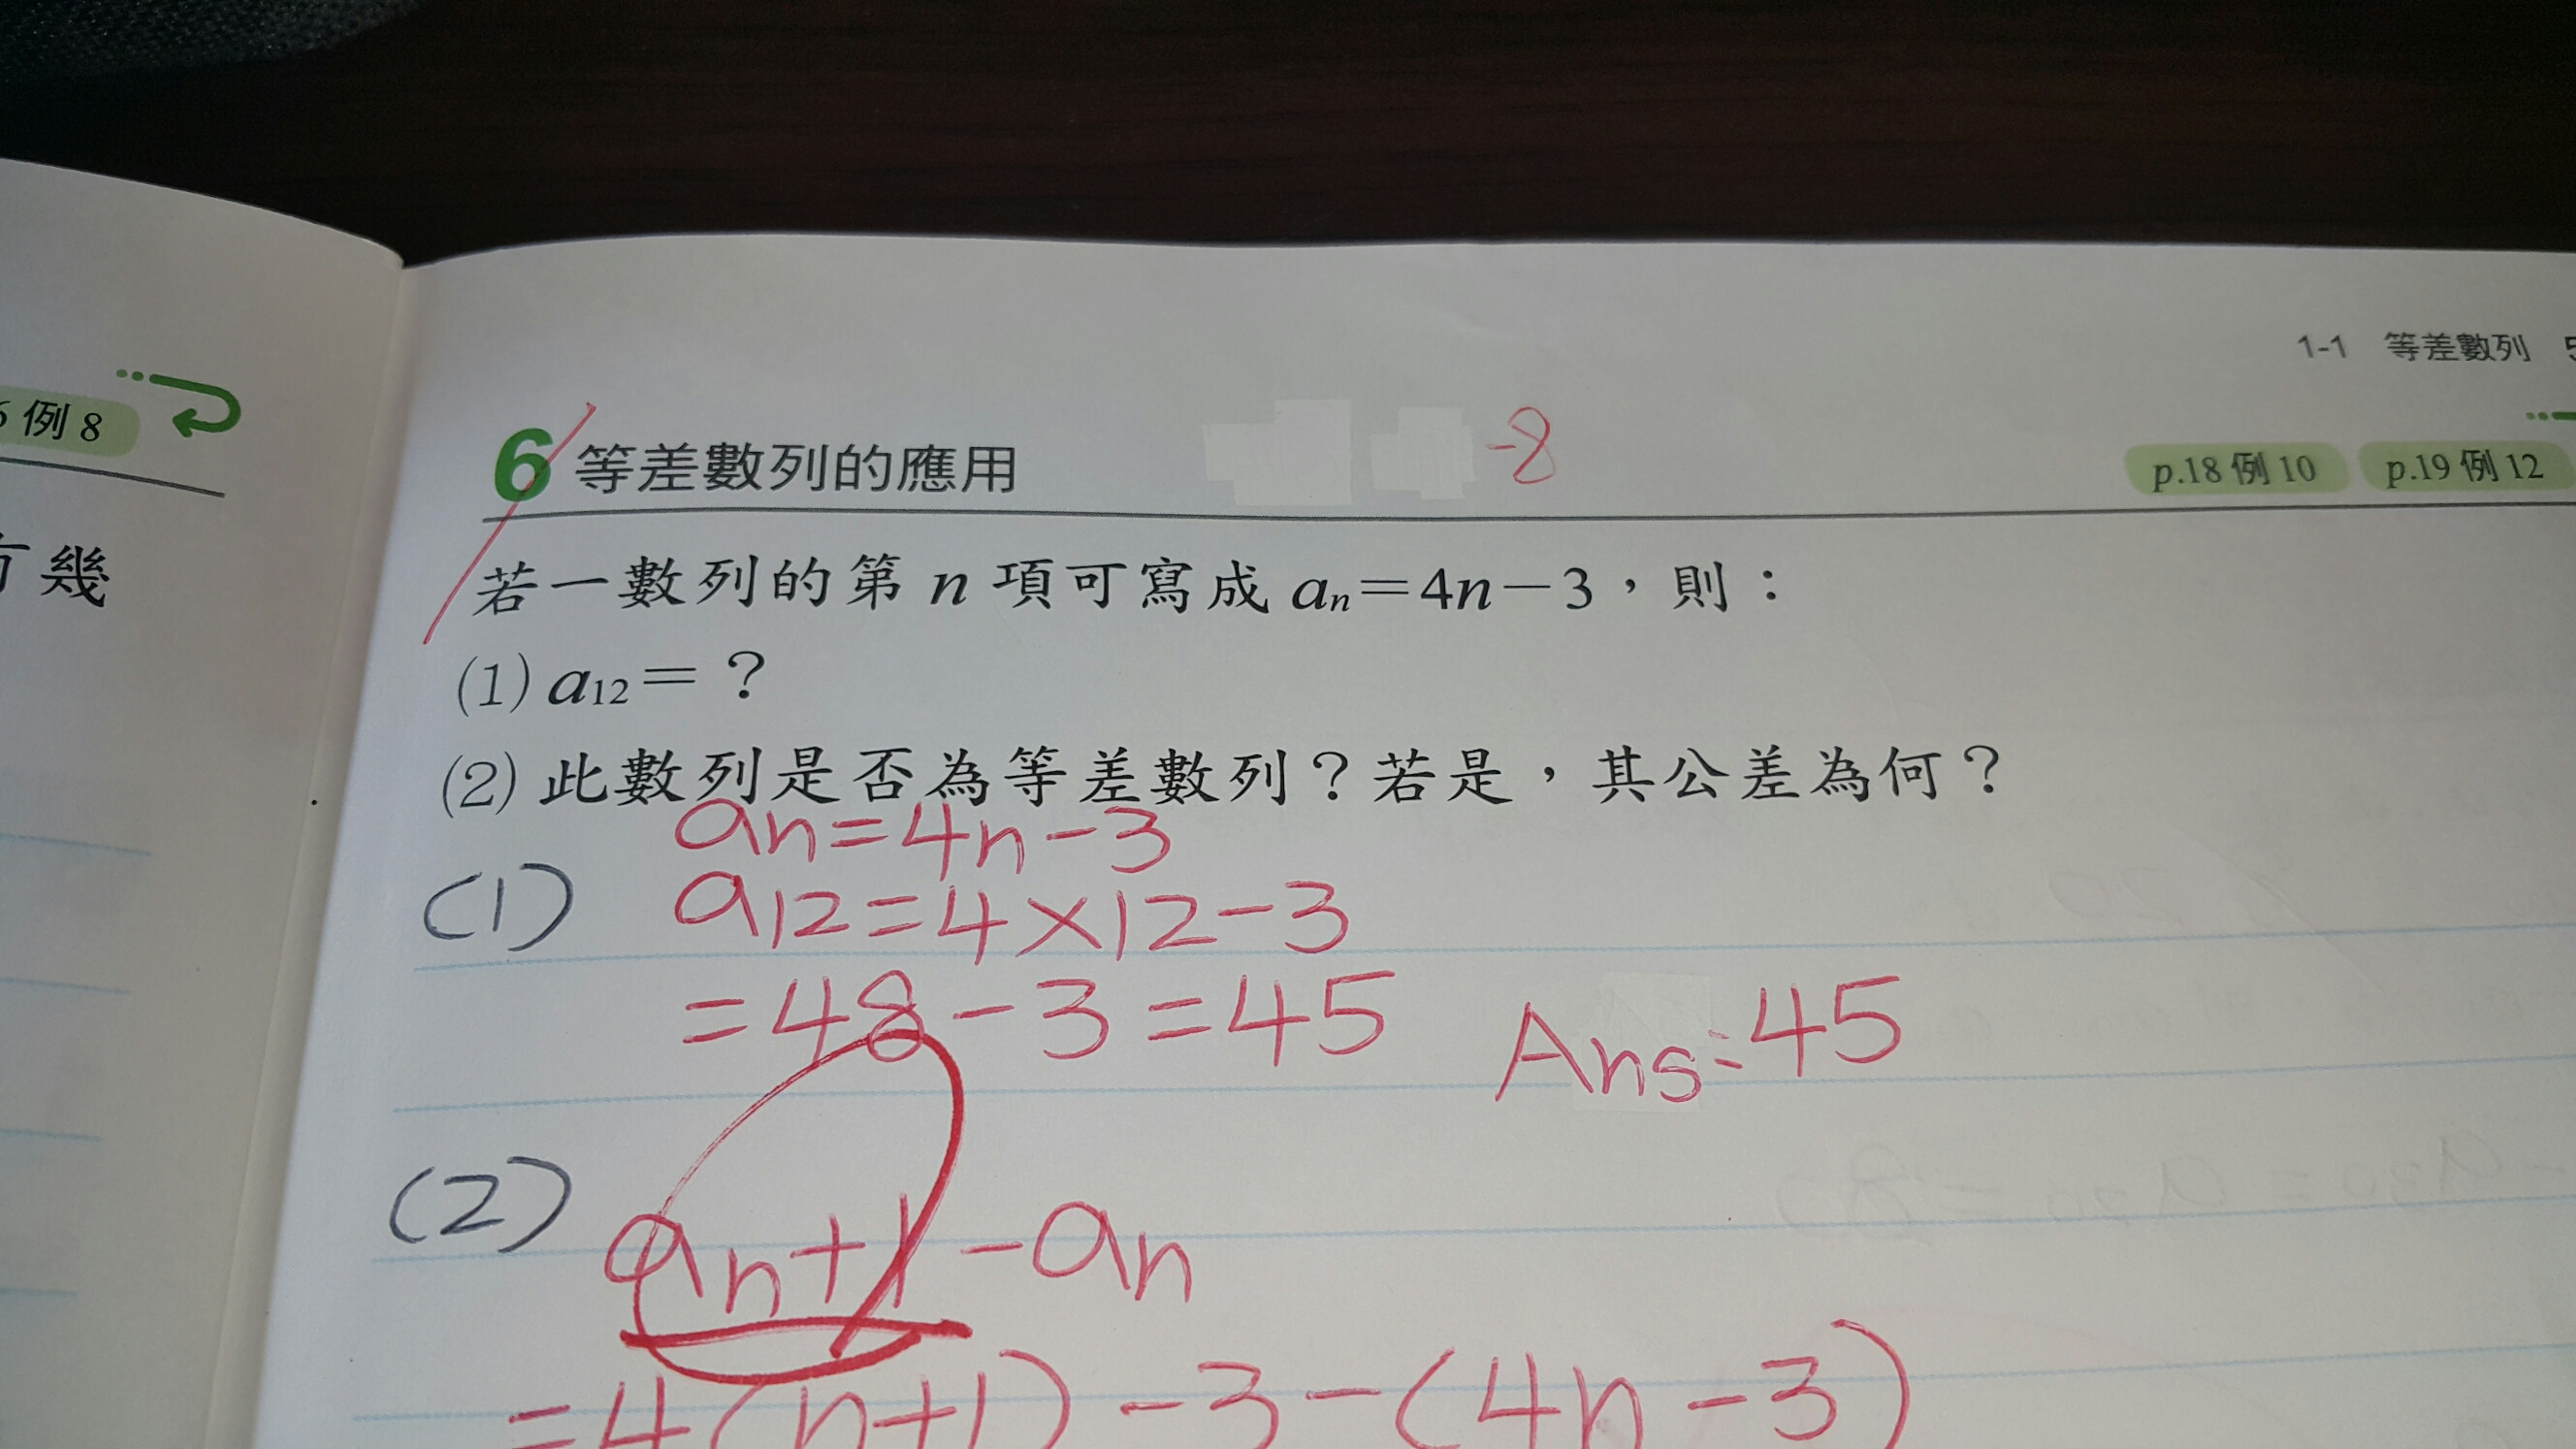 1-1 等差數列
例8
6 等差數列的應用 -8 p.18 例10 p.19 例12
幾
若一數列的第 n 項可寫成 aₙ=4n-3，則：
(1) a₁₂=？
(2) 此數列是否為等差數列？若是，其公差為何？
an=4n-3
(1) a12=4×12-3
=48-3=45 Ans:45
(2) an+1-an
=4(n+1)-3-(4n-3)